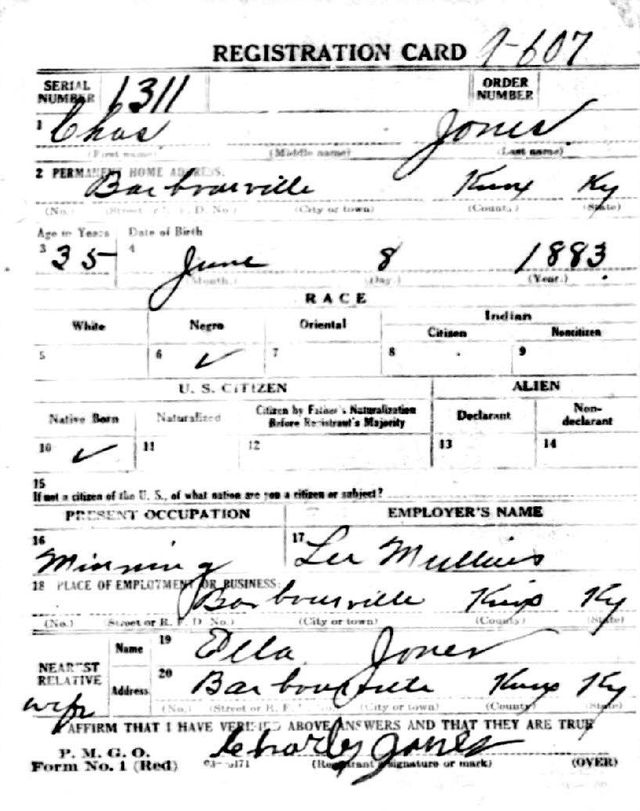 REGISTRATION CARD 1-607
SERIAL NUMBER 1311 ORDER NUMBER
1 Chas. Jones
(First name) (Middle name) (Last name)
2 PERMANENT HOME ADDRESS:
Barbourville Knox Ky
(No.) (Street or R. F. D. No.) (City or town) (County) (State)
Age in Years Date of Birth
3 35 4 June 8 1883.
(Month.) (Day.) (Year.)
RACE
White Negro Oriental Indian
Citizen Noncitizen
5 6 ✓ 7 8 9
U. S. CITIZEN ALIEN
Native Born Naturalized Citizen by Father's Naturalization Before Registrant's Majority Declarant Non-declarant
10 ✓ 11 12 13 14
15
If not a citizen of the U. S., of what nation are you a citizen or subject?
PRESENT OCCUPATION EMPLOYER'S NAME
16 Minning 17 Lee Mullins
18 PLACE OF EMPLOYMENT OR BUSINESS:
Barbourville Knox Ky
(No.) (Street or R. F. D. No.) (City or town) (County) (State)
NEAREST RELATIVE Name 19 Ella Jones
Address 20 Barbourville Knox Ky
wife (No.) (Street or R. F. (City or town) (County) (State)
I AFFIRM THAT I HAVE VERIFIED ABOVE ANSWERS AND THAT THEY ARE TRUE
P. M. G. O.
Form No. 1 (Red) Charley Jones
(Registrant's signature or mark) (OVER)